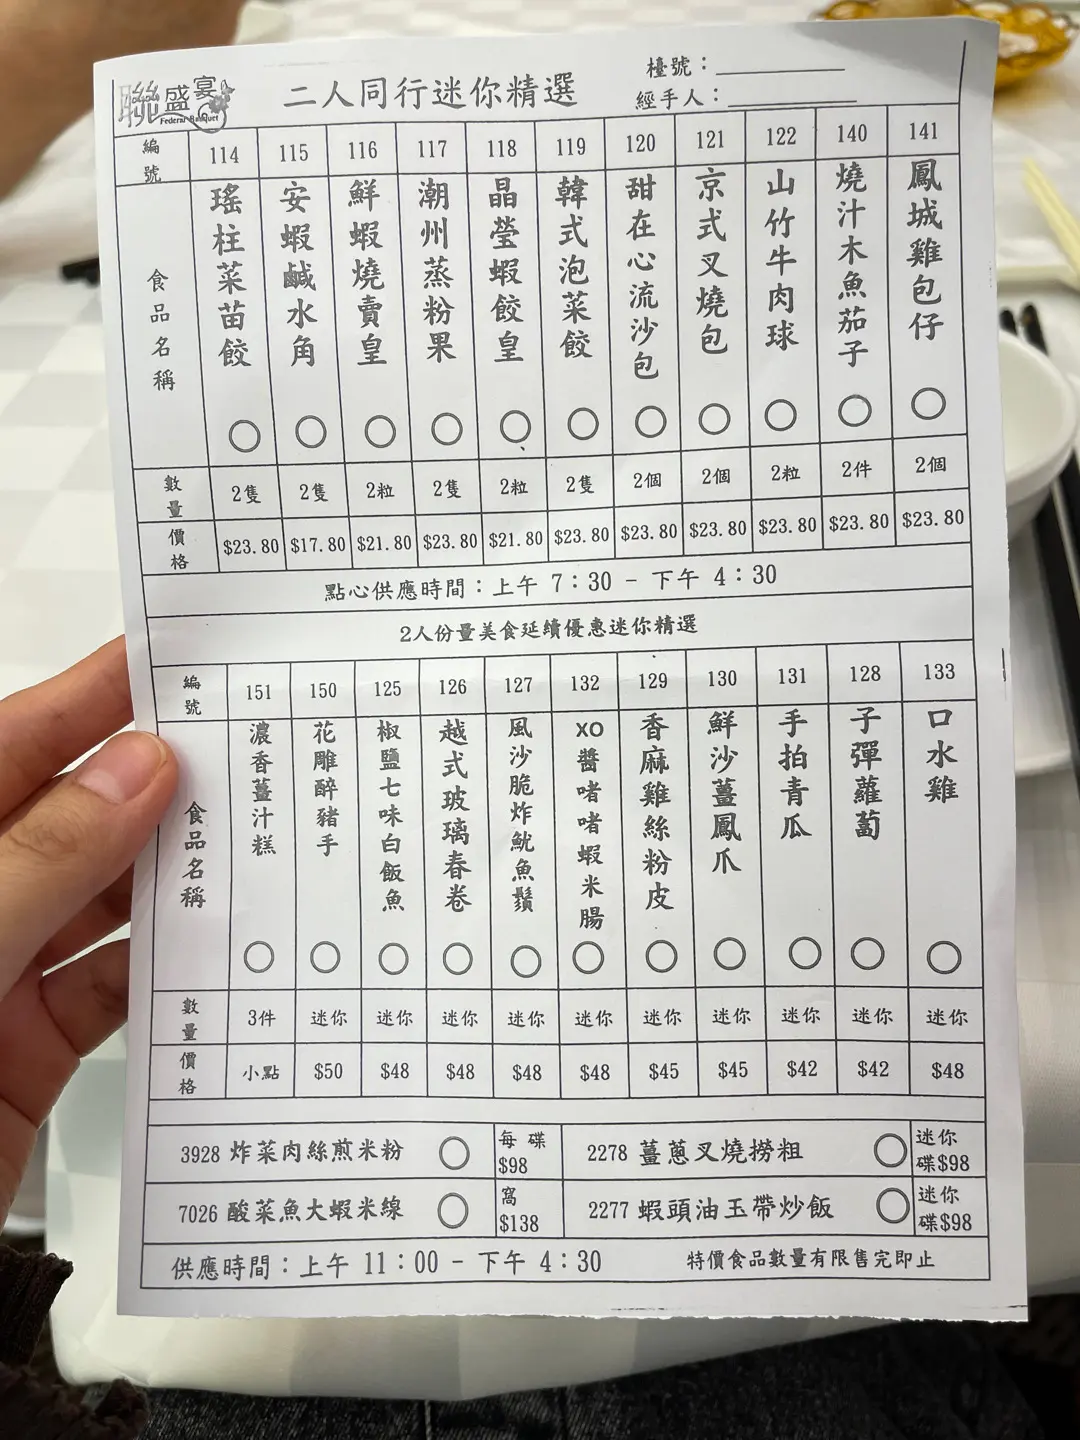 聯盛宴
Federal Banquet
二人同行迷你精選
檯號：
經手人：
編號 114 115 116 117 118 119 120 121 122 140 141
食品名稱
瑤柱菜苗餃
安蝦鹹水角
鮮蝦燒賣皇
潮州蒸粉果
晶瑩蝦餃皇
韓式泡菜餃
甜在心流沙包
京式叉燒包
山竹牛肉球
燒汁木魚茄子
鳳城雞包仔
數量 2隻 2隻 2粒 2隻 2粒 2隻 2個 2個 2粒 2件 2個
價格 $23.80 $17.80 $21.80 $23.80 $21.80 $23.80 $23.80 $23.80 $23.80 $23.80 $23.80
點心供應時間：上午 7：30 - 下午 4：30
2人份量美食延續優惠迷你精選
編號 151 150 125 126 127 132 129 130 131 128 133
食品名稱
濃香薑汁糕
花雕醉豬手
椒鹽七味白飯魚
越式玻璃春卷
風沙脆炸魷魚鬚
XO醬啫啫蝦米腸
香麻雞絲粉皮
鮮沙薑鳳爪
手拍青瓜
子彈蘿蔔
口水雞
數量 3件 迷你 迷你 迷你 迷你 迷你 迷你 迷你 迷你 迷你 迷你
價格 小點 $50 $48 $48 $48 $48 $45 $45 $42 $42 $48
3928 炸菜肉絲煎米粉 每碟 $98 2278 薑蔥叉燒撈粗 迷你碟$98
7026 酸菜魚大蝦米線 窩 $138 2277 蝦頭油玉帶炒飯 迷你碟$98
供應時間：上午 11：00 - 下午 4：30 特價食品數量有限售完即止